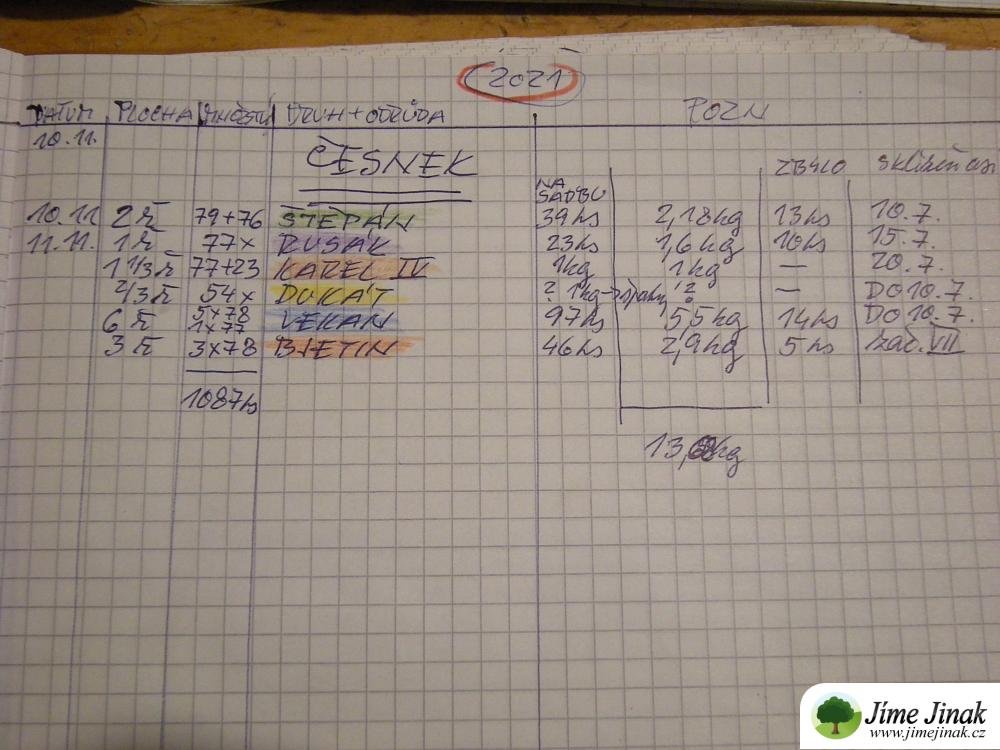 2021
DATUM PLOCHA MNOŽSTVÍ DRUH + ODRŮDA POZN
10.11.
ČESNEK ZBYLO
NA SADBU
10.11. 2 ř 79+76 ŠTĚPÁN 39 ks 2,18 kg 13 ks 10.7.
11.11. 1 ř 77x RUSÁK 23 ks 1,6 kg 10 ks 15.7.
1 1/3 ř 77+23 KAREL IV 1 kg 1 kg — 20.7.
2/3 ř 54x DUKÁT ? 1 kg → ? — DO 10.7.
6 ř 5x78 1x77 VEKAN 97 ks 5,5 kg 14 ks DO 10.7.
3 ř 3x78 BJETIN 46 ks 2,9 kg 5 ks zač. VII
1087 ks
13, kg
Jíme Jinak
www.jimejinak.cz